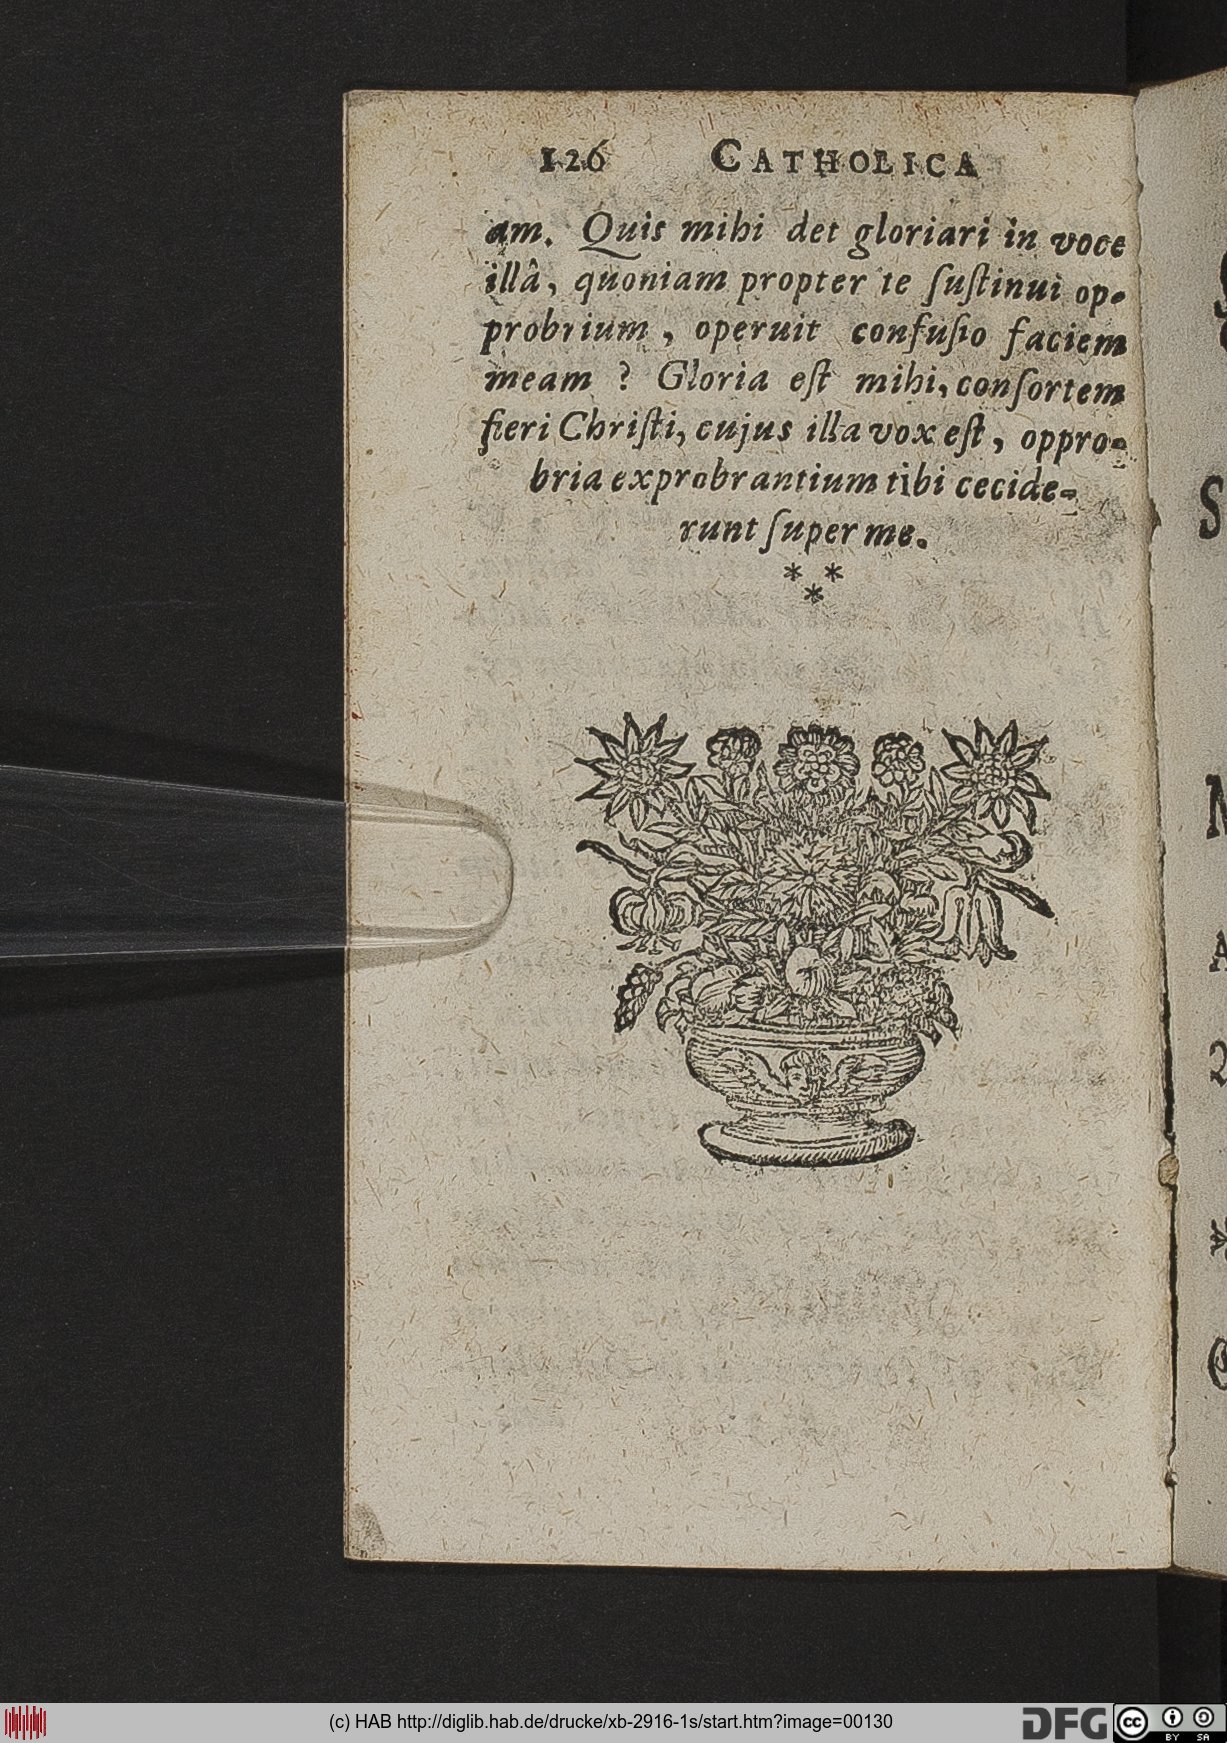 126 CATHOLICA
am. Quis mihi det gloriari in voce
illâ, quoniam propter te ſuſtinui op-
probrium, operuit confuſio faciem
meam? Gloria eſt mihi, conſortem
fieri Chriſti, cujus illa vox eſt, oppro-
bria exprobrantium tibi cecide-
runt ſuper me.
* *
*
(c) HAB http://diglib.hab.de/drucke/xb-2916-1s/start.htm?image=00130
DFG
cc BY SA